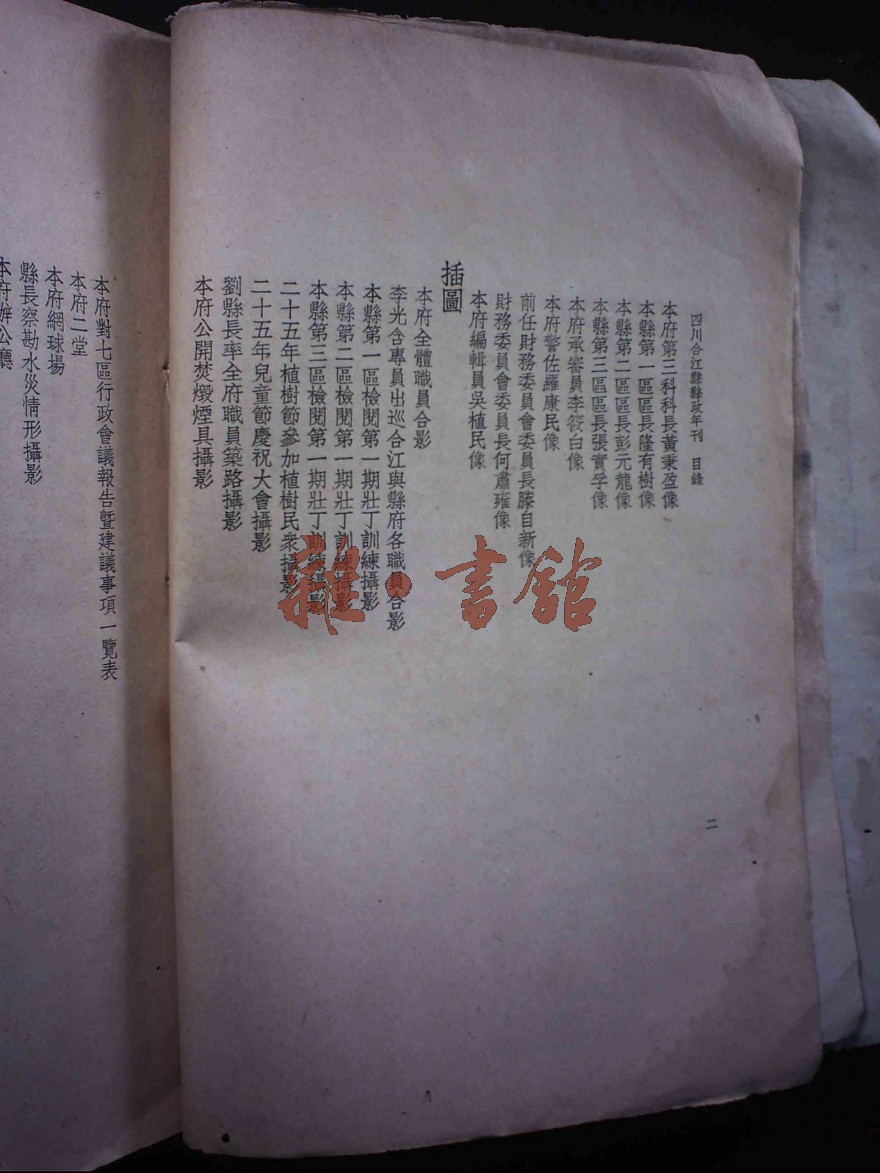 四川合江縣縣政年刊　目錄
本府第三科科長黃秉盈像
本縣第一區區長隆有樹像
本縣第二區區長彭元龍像
本縣第三區區長張實孚像
本府承審員李筱白像
本府警佐羅康民像
前任財務委員會委員長滕自新像
財務委員會委員長何肅雍像
本府編輯員吳植民像
插圖
本府全體職員合影
李光含專員出巡合江與縣府各職員合影
本縣第一區檢閱第一期壯丁訓練攝影
本縣第二區檢閱第一期壯丁訓練攝影
本縣第三區檢閱第一期壯丁訓練攝影
二十五年植樹節參加植樹民衆攝影
二十五年兒童節慶祝大會攝影
劉縣長率全府職員築路攝影
本府公開焚燬煙具攝影
二
本府對七區行政會議報告暨建議事項一覽表
本府二堂
本府網球場
縣長察勘水災情形攝影
本府辦公廳
雜·書館